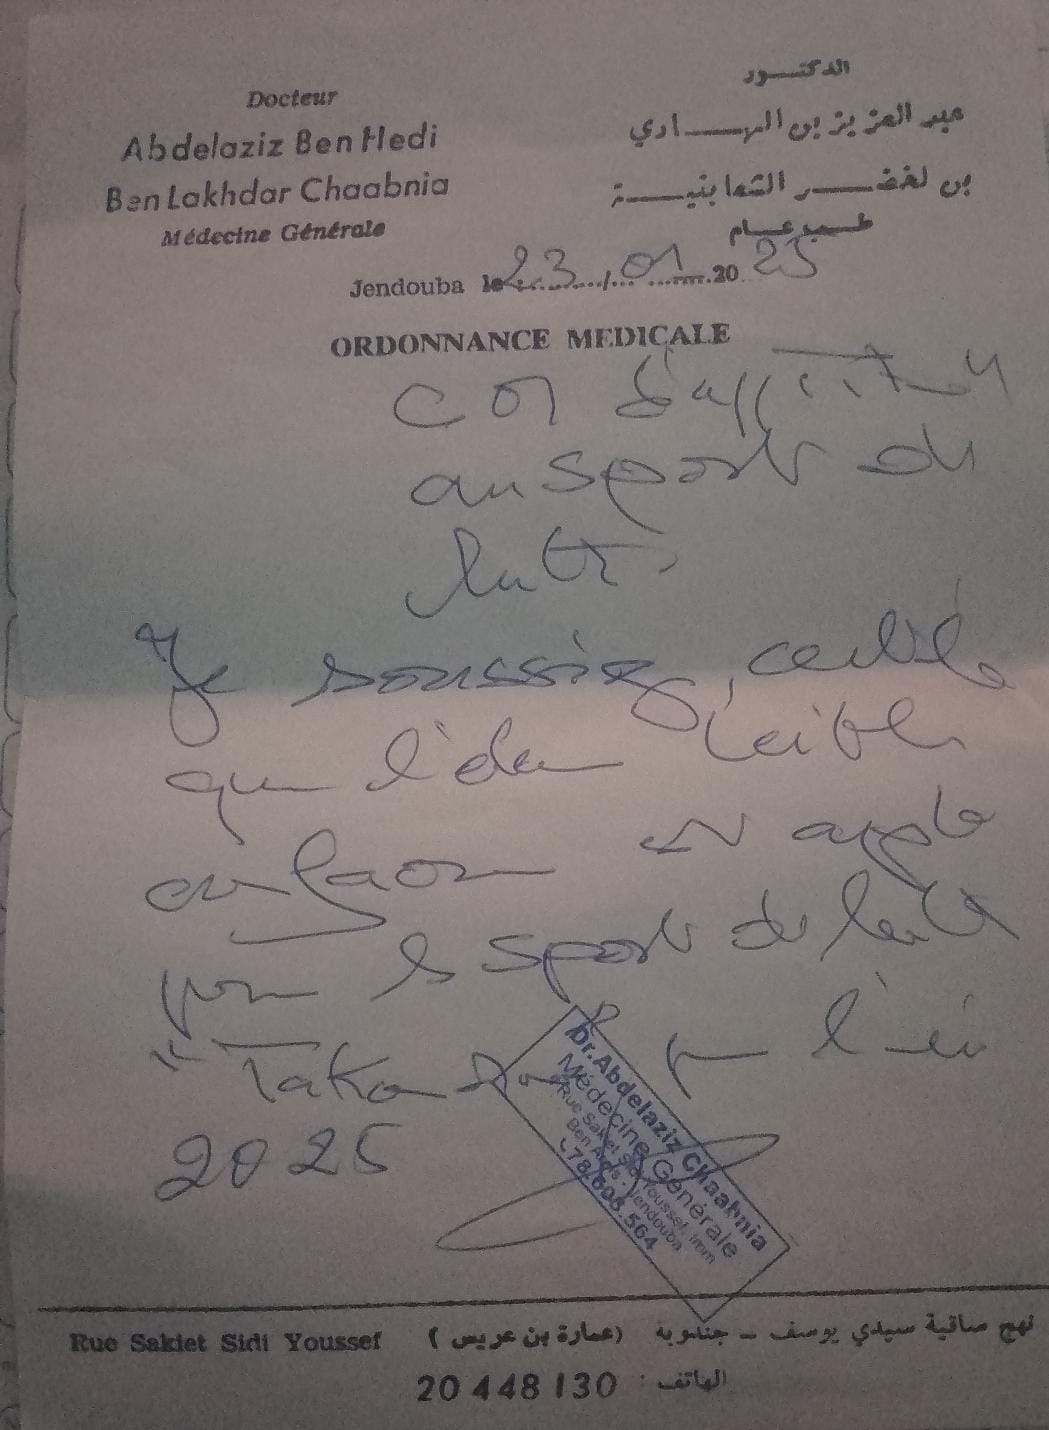 Docteur
Abdelaziz Ben Hedi
Ben Lakhdar Chaabnia
Médecine Générale
الدكتور
عبد العزيز بن الهادي
بن لخضر الشعابنية
طب عام
Jendouba le 23/01 2025
ORDONNANCE MEDICALE
d'aptitude
au sport de
lutte
Je soussigné, certifie
que l'
est apte
pour le sport de lutte
"
2025
Dr. Abdelaziz Chaabnia
Médecine Générale
Rue Sakiet Sidi Youssef, Imm
Ben - Jendouba
Rue Sakiet Sidi Youssef (عمارة بن عريس) نهج ساقية سيدي يوسف - جندوبة
الهاتف : 20 448 130